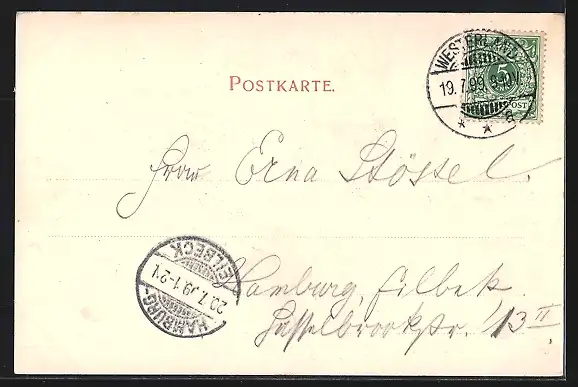 POSTKARTE.
WESTERLAND
19.7.99. 8-9N.
* * a
5
POST
Frau Erna Stössel.
HAMBURG-EILBECK
20.7.99.1-2N.
Hamburg, Eilbek.
Hasselbrookstr. 13 II